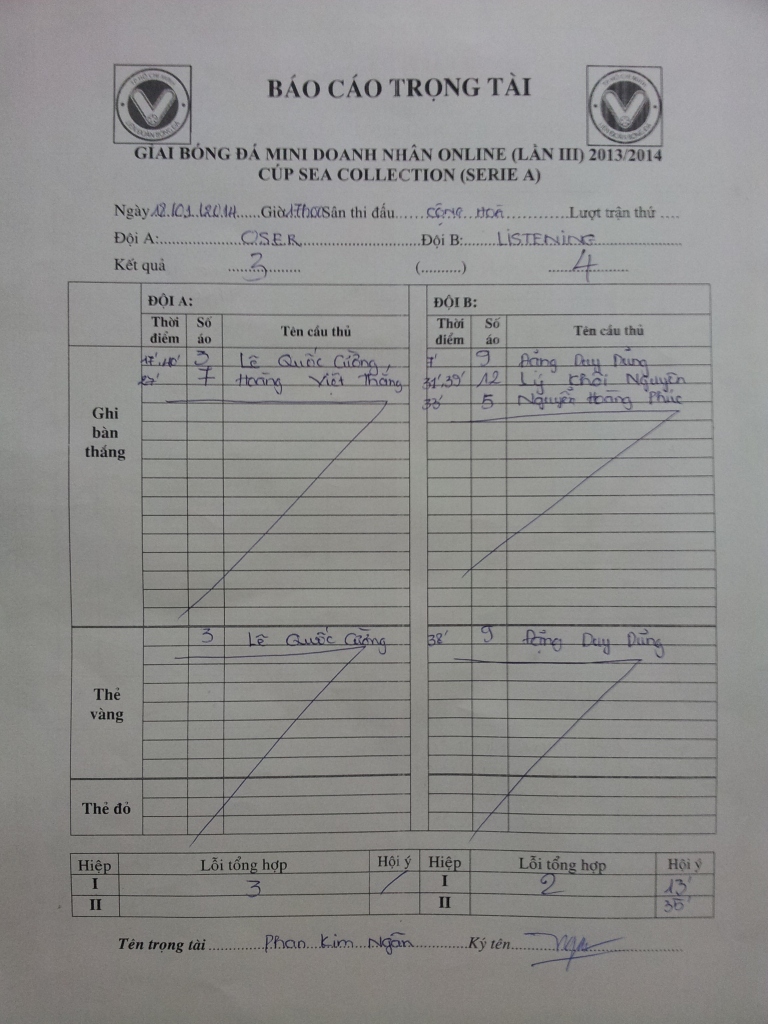 BÁO CÁO TRỌNG TÀI
GIẢI BÓNG ĐÁ MINI DOANH NHÂN ONLINE (LẦN III) 2013/2014
CÚP SEA COLLECTION (SERIE A)
Ngày 12/01/2014 Giờ 17h00 Sân thi đấu...... CỘNG HOÀ ...............Lượt trận thứ ....
Đội A:................ OSER ................Đội B:........ LISTENING ................
Kết quả 3 (..........) 4
ĐỘI A: ĐỘI B:
Thời điểm Số áo Tên cầu thủ Thời điểm Số áo Tên cầu thủ
Ghi bàn thắng
17', 40' 3 Lê Quốc Cường, 7' 9 Đặng Duy Dũng
27' 7 Hoàng Viết Thắng 31', 39' 12 Lý Khôi Nguyên
33' 5 Nguyễn Hoàng Phúc
Thẻ vàng
3 Lê Quốc Cường 38' 9 Đặng Duy Dũng
Thẻ đỏ
Hiệp Lỗi tổng hợp Hội ý Hiệp Lỗi tổng hợp Hội ý
I 3 / I 2 13'
II II 35'
Tên trọng tài ............ Phan Kim Ngân ............Ký tên............